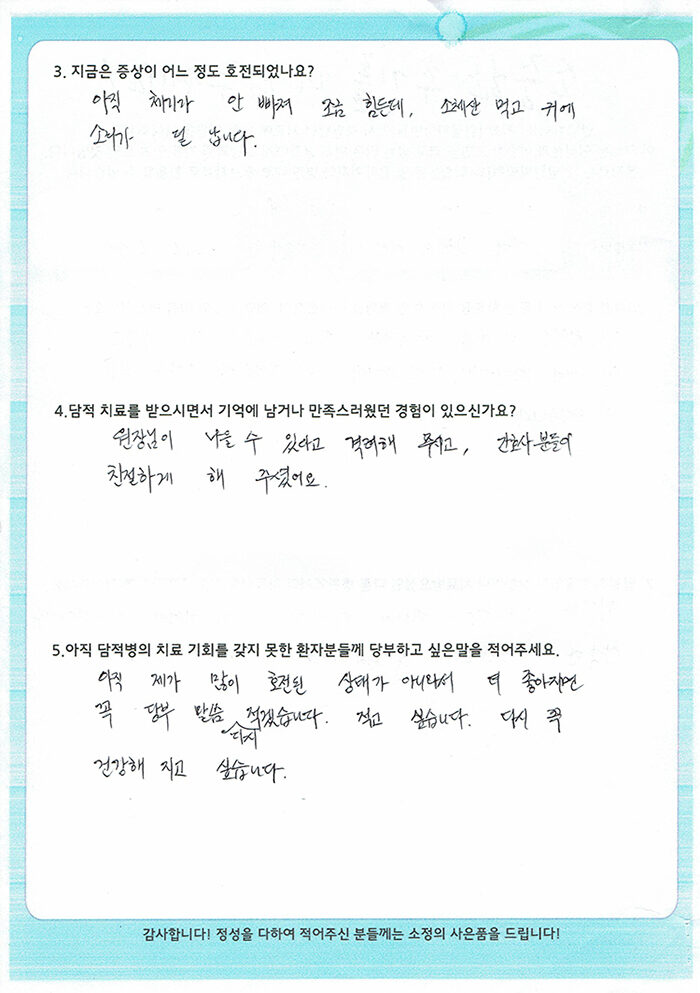 3. 지금은 증상이 어느 정도 호전되었나요?
아직 체기가 안 빠져 조금 힘든데, 소체산 먹고 귀에
소리가 덜 납니다.
4.담적 치료를 받으시면서 기억에 남거나 만족스러웠던 경험이 있으신가요?
원장님이 나을 수 있다고 격려해 주시고, 간호사분들이
친절하게 해 주셨어요.
5.아직 담적병의 치료 기회를 갖지 못한 환자분들께 당부하고 싶은말을 적어주세요.
아직 제가 많이 호전된 상태가 아니와서 더 좋아지면
꼭 당부 말씀 적겠습니다. 적고 싶습니다. 다시 꼭
다시
건강해 지고 싶습니다.
감사합니다! 정성을 다하여 적어주신 분들께는 소정의 사은품을 드립니다!